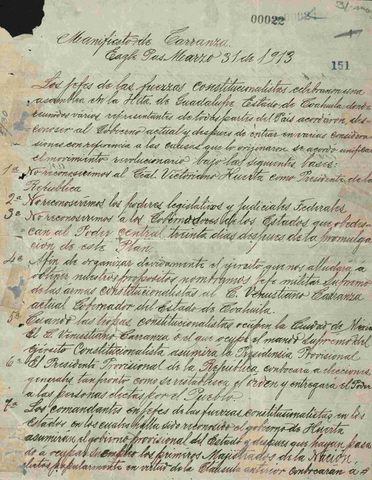 00022
151
Manifiesto de Carranza.
Eagle Pas Marzo 31 de 1913
Los jefes de las fuerzas constitucionalistas celebraron una
asamblea en la Hda. de Guadalupe Estado de Coahuila, donde
reunidos varios representantes de todas partes del Pais acordaron, des-
conocer al Gobierno actual y despues de entrar en varias considera-
ciones con referencia a las causas que lo originaron se acordó unificar
el movimiento revolucionario bajo las siguientes bases:
1a No reconocemos al Gral. Victoriano Huerta como Presidente de la
Republica
2a No reconoceremos los poderes legislativos y judiciales Federales.
3a No reconoceremos a los Gobernadores de los Estados que obedezcan
al Poder central, treinta dias despues de la promulga-
cion de este Plan.
4a Afin de organizar devidamente el ejercito que nos ayudara a
nuestros propositos nombramos Jefe militar Supremo
de las armas constitucionalistas al C. Venustiano Carranza
actual Gobernador del Estado de Coahuila.
5a Cuando las tropas constitucionalistas ocupen la Ciudad de Mexico
El C. Venustiano Carranza o el que ocupe el mando Supremo del
Ejército Constitucionalista asumira la Presidencia Provisional
6a El Presidente Provisional de la Republica, convocara a elecciones
generales tan pronto como se restablezca el orden y entregara el Poder
a las personas electas por el Pueblo.
7a Los comandantes en jefes de las fuerzas constitucionalistas en los
Estados en los cuales halla sido reconocido el gobierno de Huerta
asumiran el gobierno provisional del Estado y despues que hayan pasado
a ocupar el empleo los primeros Magistrados de la Nación,
electos popularmente en virtud de la Clausula anterior convocaran a